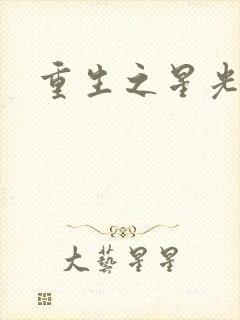 重生之星光
大藝星星